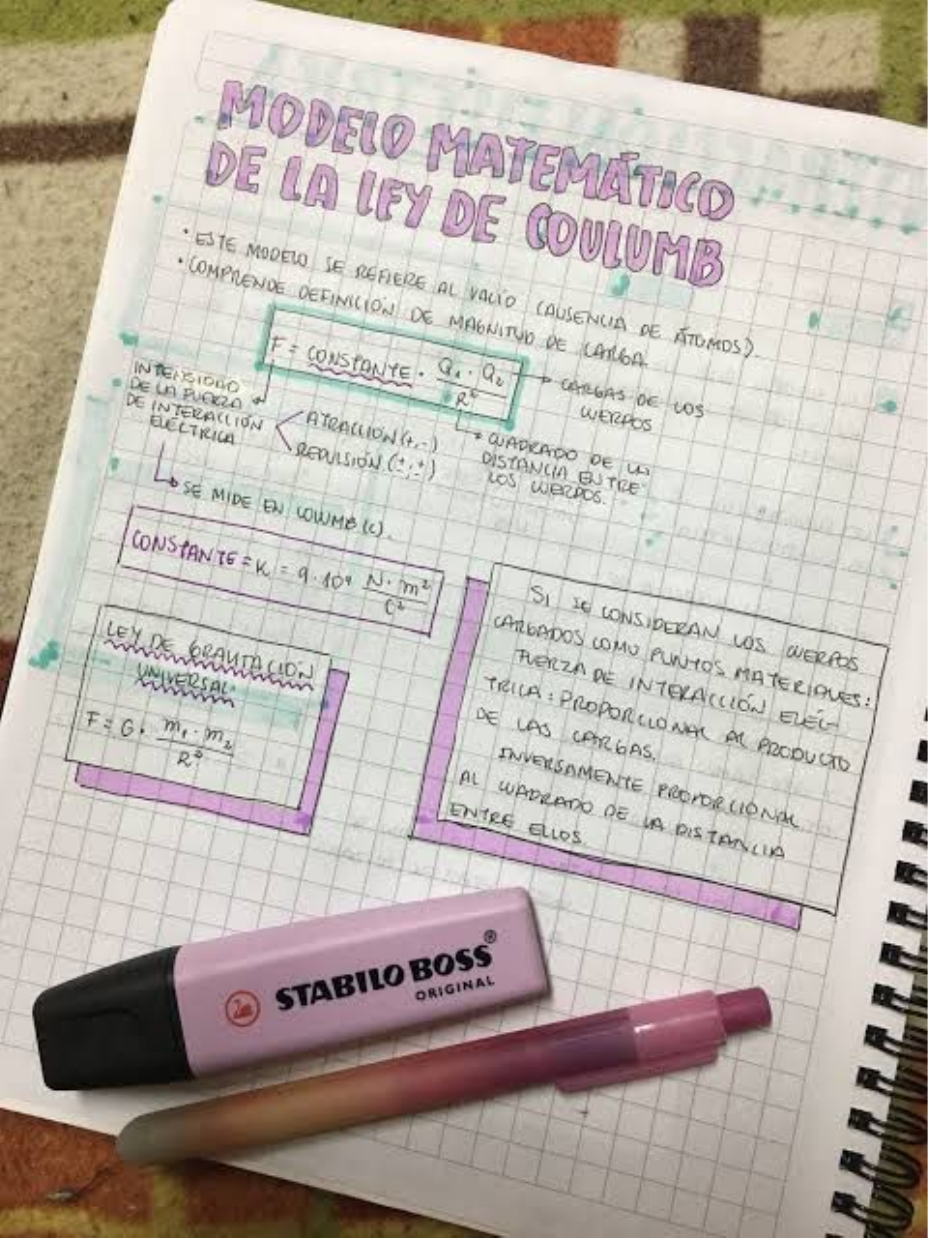 MODELO MATEMÁTICO
DE LA LEY DE COULUMB
• ESTE MODELO SE REFIERE AL VACÍO (AUSENCIA DE ÁTOMOS).
• COMPRENDE DEFINICIÓN DE MAGNITUD DE CARGA
F = CONSTANTE · Q₁ · Q₂ / R²
→ CARGAS DE LOS
CUERPOS
INTENSIDAD
DE LA FUERZA
DE INTERACCIÓN
ELÉCTRICA
ATRACCIÓN (+,-)
REPULSIÓN (±,±)
CUADRADO DE LA
DISTANCIA ENTRE
LOS CUERPOS.
↳ SE MIDE EN COLUMB (C).
CONSTANTE = K = 9·10⁹ N·m² / C²
LEY DE GRAVITACIÓN
UNIVERSAL:
F = G · m₁ · m₂ / R²
SI SE CONSIDERAN LOS CUERPOS
CARGADOS COMO PUNTOS MATERIALES:
FUERZA DE INTERACCIÓN ELÉC-
TRICA: PROPORCIONAL AL PRODUCTO
DE LAS CARGAS.
INVERSAMENTE PROPORCIONAL
AL CUADRADO DE LA DISTANCIA
ENTRE ELLOS.
STABILO BOSS®
ORIGINAL